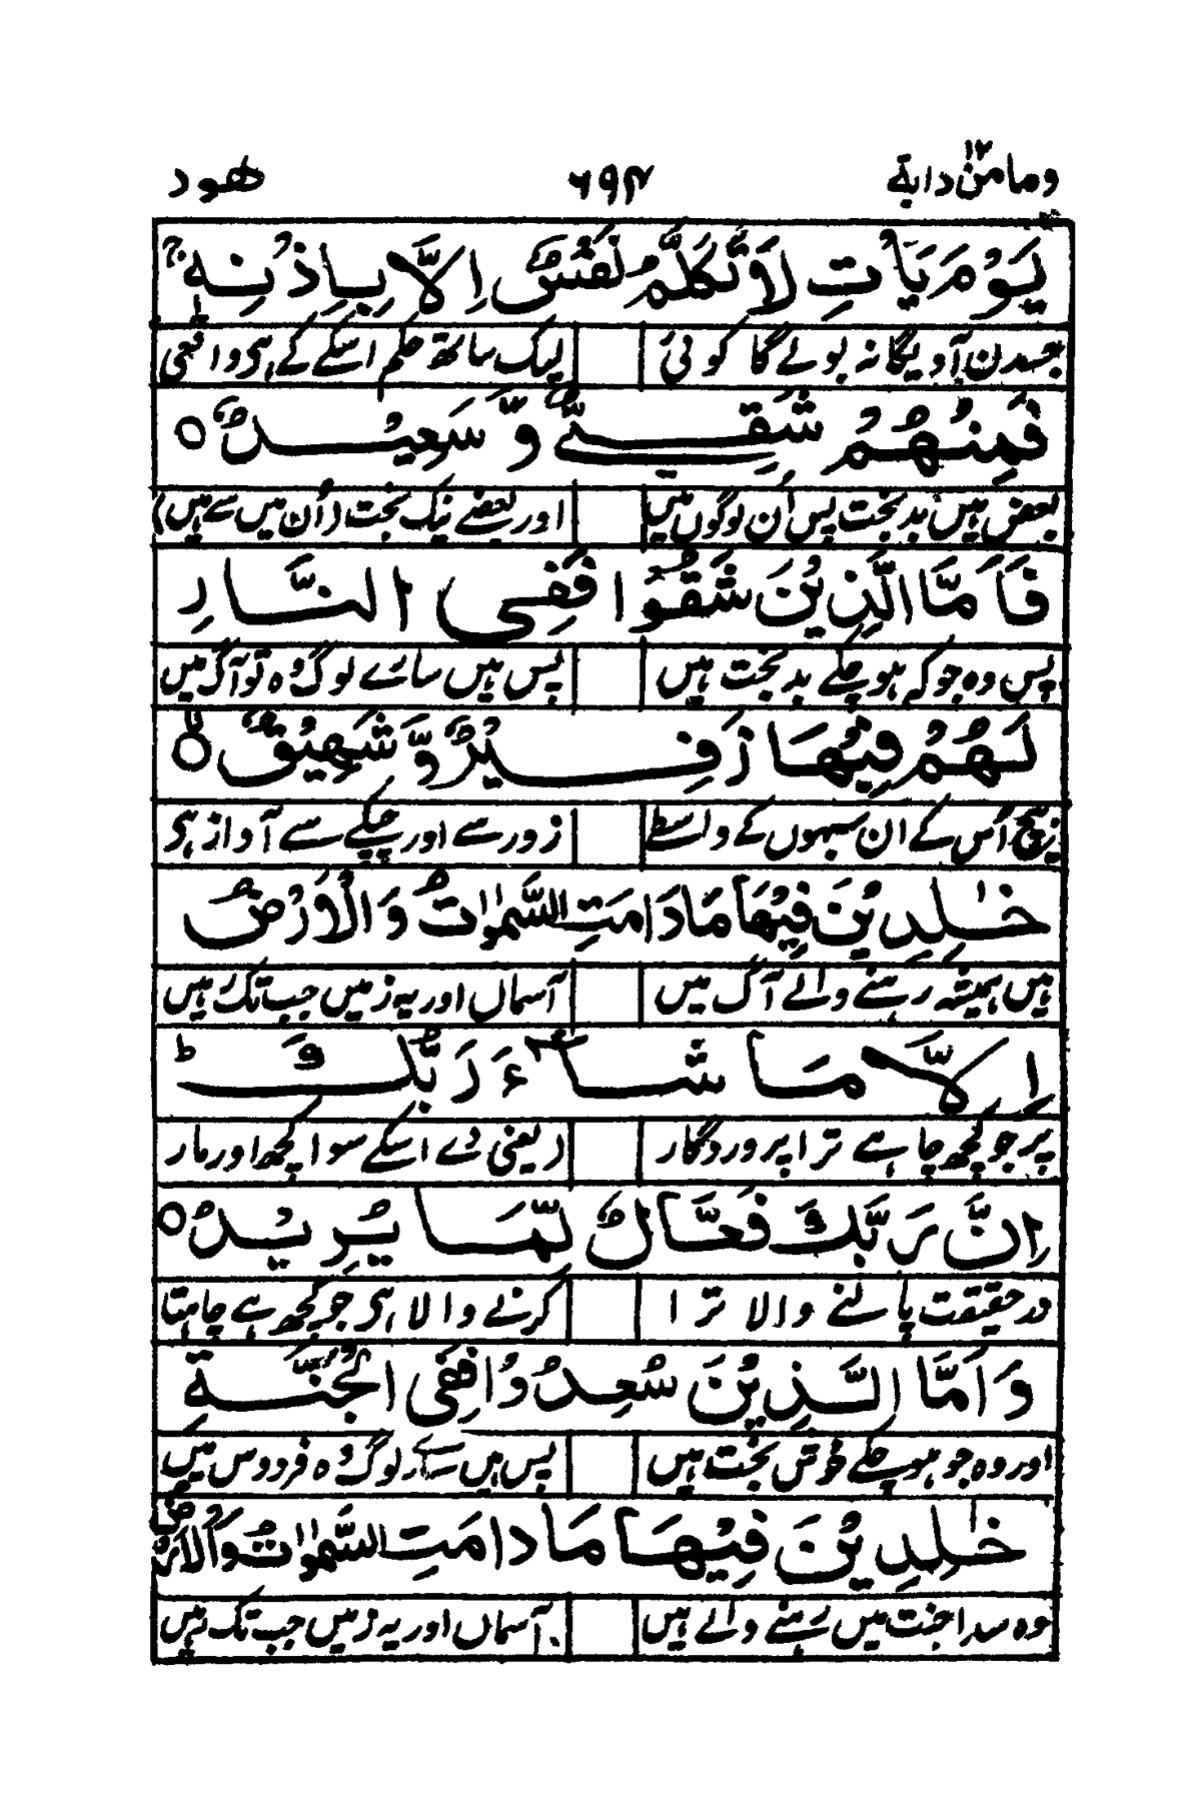 وما من دابة ١٢ ٦٩٤ هود
يَوْمَ يَأْتِ لَا تَكَلَّمُ نَفْسٌ اِلَّا بِاِذْنِهٖ ۚ
جسدن آویگا نہ بولے گا کوئی لیک ساتھ حکم اسکے کے ہی واقعی
فَمِنْهُمْ شَقِيٌّ وَّ سَعِيْدٌ ۝
بعض ہیں بد بخت پس اُن لوگوں میں اور بعضے نیک بخت (اُن میں سے ہیں)
فَاَمَّا الَّذِيْنَ شَقُوْا فَفِى النَّارِ
پس وہ جو کہ ہو چکے بد بخت ہیں پس ہیں سارے لوگ وُہ تو آگ میں
لَهُمْ فِيْهَا زَفِيْرٌ وَّ شَهِيْقٌ ۝
بیچ اُس کے ان سبھوں کے واسطے زور سے اور چپکے سے آواز ہی
خٰلِدِيْنَ فِيْهَا مَا دَامَتِ السَّمٰوٰتُ وَ الْاَرْضُ
ہیں ہمیشہ رہنے والے آگ میں آسماں اور یہ زمیں جب تک رہیں
اِلَّا مَا شَآءَ رَبُّكَ ؕ
پر جو کچھ چاہے ترا پروردگار (یعنی دے اسکے سوا کچھ اور مار
اِنَّ رَبَّكَ فَعَّالٌ لِّمَا يُرِيْدُ ۝
در حقیقت پالنے والا ترا کرنے والا ہی جو کچھ ہے چاہتا
وَ اَمَّا الَّذِيْنَ سُعِدُوْا فَفِى الْجَنَّةِ
اور وہ جو ہو چکے خوش بخت ہیں پس ہیں سارے لوگ وُہ فردوس میں
خٰلِدِيْنَ فِيْهَا مَا دَامَتِ السَّمٰوٰتُ وَ الْاَرْضُ
وہ سدا جنت میں رہنے والے ہیں آسماں اور یہ زمیں جب تک رہیں